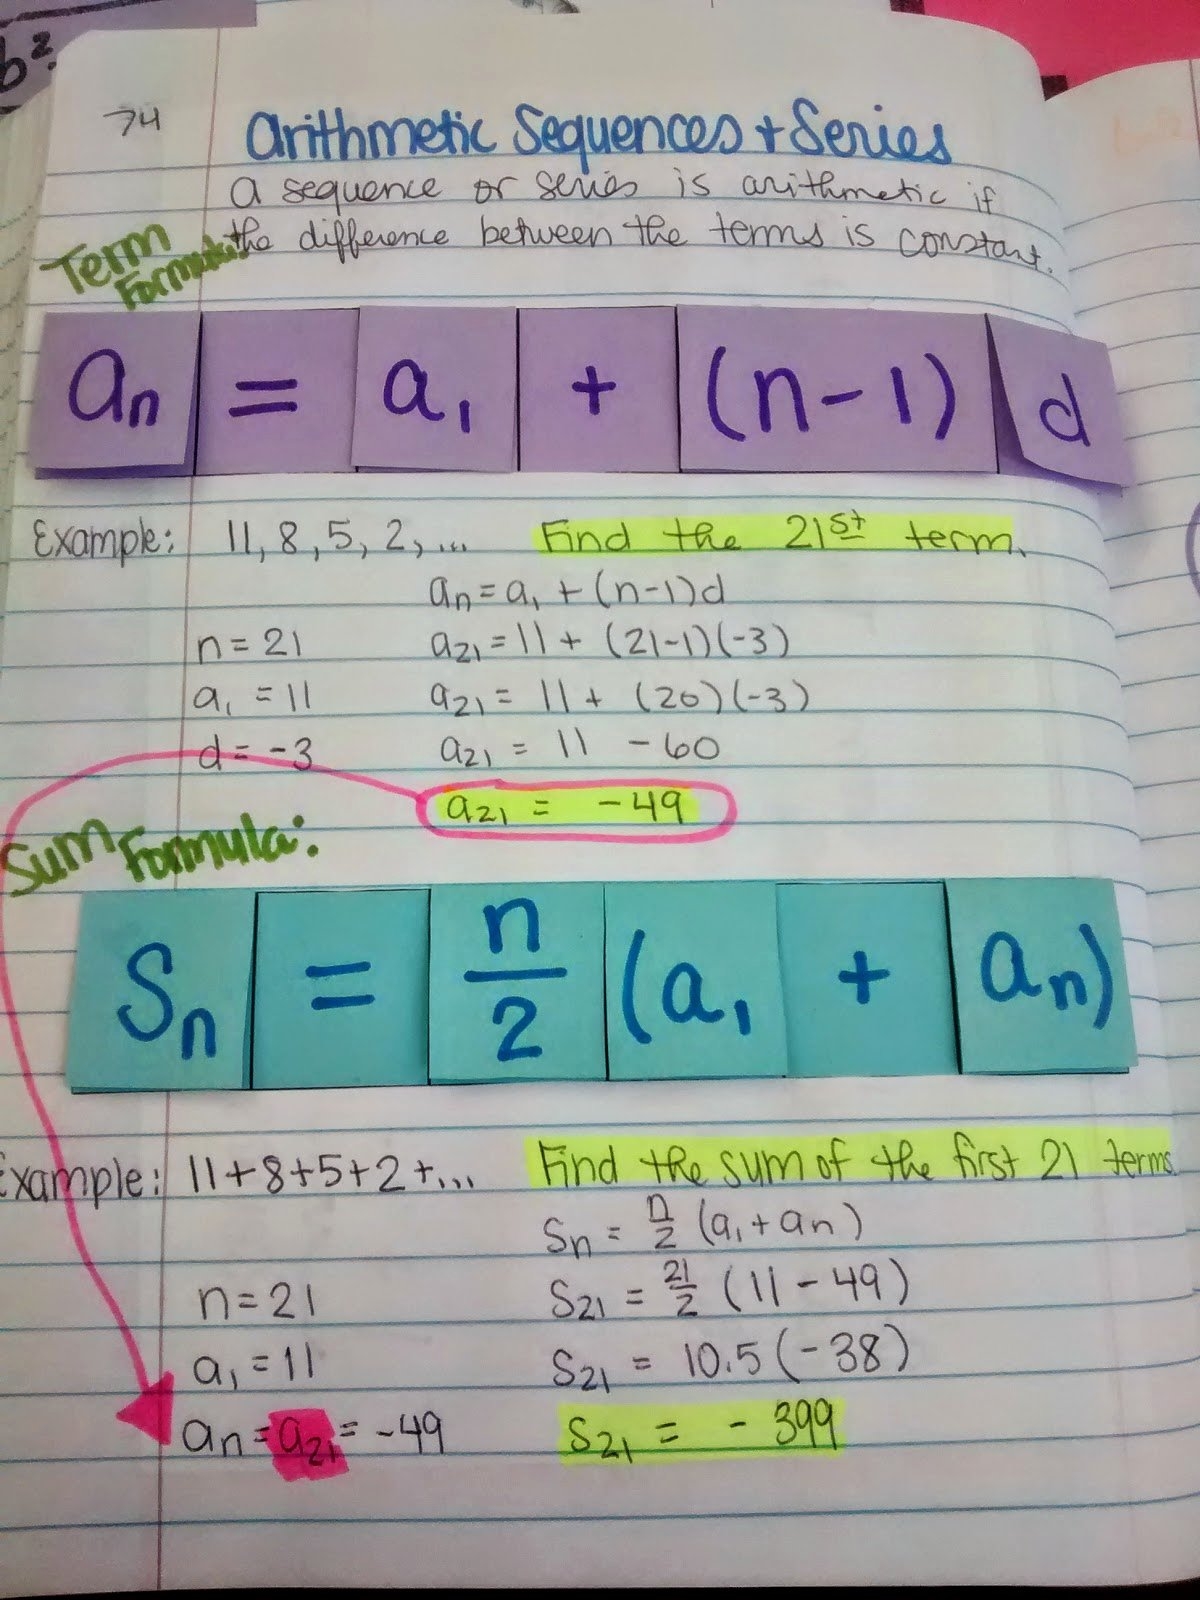 b²
74
Arithmetic Sequences + Series
a sequence or series is arithmetic if
the difference between the terms is constant.
Term
Formula:
aₙ = a₁ + (n-1) d
Example: 11, 8, 5, 2, ... Find the 21st term.
aₙ = a₁ + (n-1)d
n = 21 a₂₁ = 11 + (21-1)(-3)
a₁ = 11 a₂₁ = 11 + (20)(-3)
d = -3 a₂₁ = 11 - 60
a₂₁ = -49
Sum Formula:
Sₙ = n/2 (a₁ + aₙ)
Example: 11+8+5+2+... Find the sum of the first 21 terms.
Sₙ = n/2 (a₁+aₙ)
n = 21 S₂₁ = 21/2 (11 - 49)
a₁ = 11 S₂₁ = 10.5(-38)
aₙ = a₂₁ = -49 S₂₁ = - 399